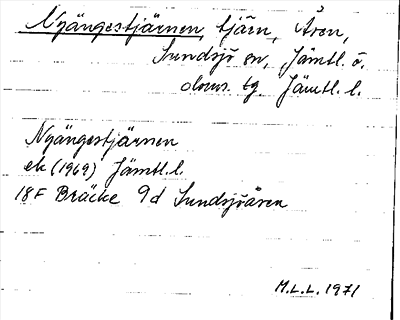 Nyängestjärnen, tjärn, Åren,
Sundsjö sn, Jämtl. ö.
doms. tg Jämtl. l.
Nyängestjärnen
ek (1969) Jämtl. l.
18F Bräcke 9d Sundsjöåsen
M.L.L. 1971